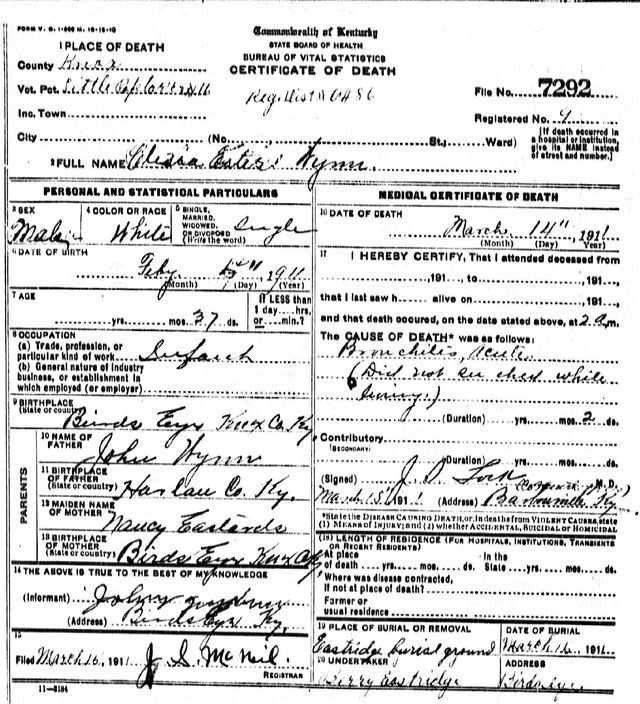 FORM V. S. 1-500 M. 10-15-10
Commonwealth of Kentucky
STATE BOARD OF HEALTH
BUREAU OF VITAL STATISTICS
CERTIFICATE OF DEATH
1 PLACE OF DEATH
County Knox
Vot. Pct. Little
Reg. Dist
File No. 7292
Inc. Town
Registered No. 9
City (No. St.; Ward)
[If death occurred in a hospital or institution, give its NAME instead of street and number.]
2 FULL NAME Wynn.
PERSONAL AND STATISTICAL PARTICULARS
3 SEX
Male
4 COLOR OR RACE
White
5 SINGLE, MARRIED, WIDOWED, OR DIVORCED (Write the word)
Single
6 DATE OF BIRTH
Feby 1911
(Month) (Day) (Year)
7 AGE
yrs. mos. 37 ds.
If LESS than 1 day hrs. or min.?
8 OCCUPATION
(a) Trade, profession, or particular kind of work Infant
(b) General nature of industry business, or establishment in which employed (or employer)
9 BIRTHPLACE
(State or country) Birds Eye Knox Co. Ky.
PARENTS
10 NAME OF FATHER John Wynn
11 BIRTHPLACE OF FATHER (State or country) Harlan Co. Ky.
12 MAIDEN NAME OF MOTHER Nancy
13 BIRTHPLACE OF MOTHER (State or country) Birds Eye Knox Co Ky
14 THE ABOVE IS TRUE TO THE BEST OF MY KNOWLEDGE
(Informant) John
(Address) Birds Eye Ky.
15
Filed March 1911 J. S. McNeil.
REGISTRAR
11-3184
MEDICAL CERTIFICATE OF DEATH
16 DATE OF DEATH
March 14" 1911
(Month) (Day) (Year)
17 I HEREBY CERTIFY, That I attended deceased from
191 , to 191 ,
that I last saw h alive on 191 ,
and that death occured, on the date stated above, at 2 a m.
The CAUSE OF DEATH* was as follows:
Bronchitis, Acute.
(Did not see child while
living.)
(Duration) yrs. mos. 2 ds.
Contributory
(SECONDARY)
(Duration) yrs. mos. ds.
(Signed) J. D. (Coroner) M. D.
March 15" 1911 (Address) Barbourville Ky.
*State the DISEASE CAUSING DEATH, or, in deaths from VIOLENT CAUSES, state
(1) MEANS OF INJURY; and (2) whether ACCIDENTAL, SUICIDAL or HOMICIDAL
(18) LENGTH OF RESIDENCE (FOR HOSPITALS, INSTITUTIONS, TRANSIENTS OR RECENT RESIDENTS)
At place of death yrs. mos. ds. In the State yrs. mos. ds.
Where was disease contracted, If not at place of death?
Former or usual residence
19 PLACE OF BURIAL OR REMOVAL
Eastridge burial ground
DATE OF BURIAL
March 1911
20 UNDERTAKER
Berry Eastridge
ADDRESS
Birdseye